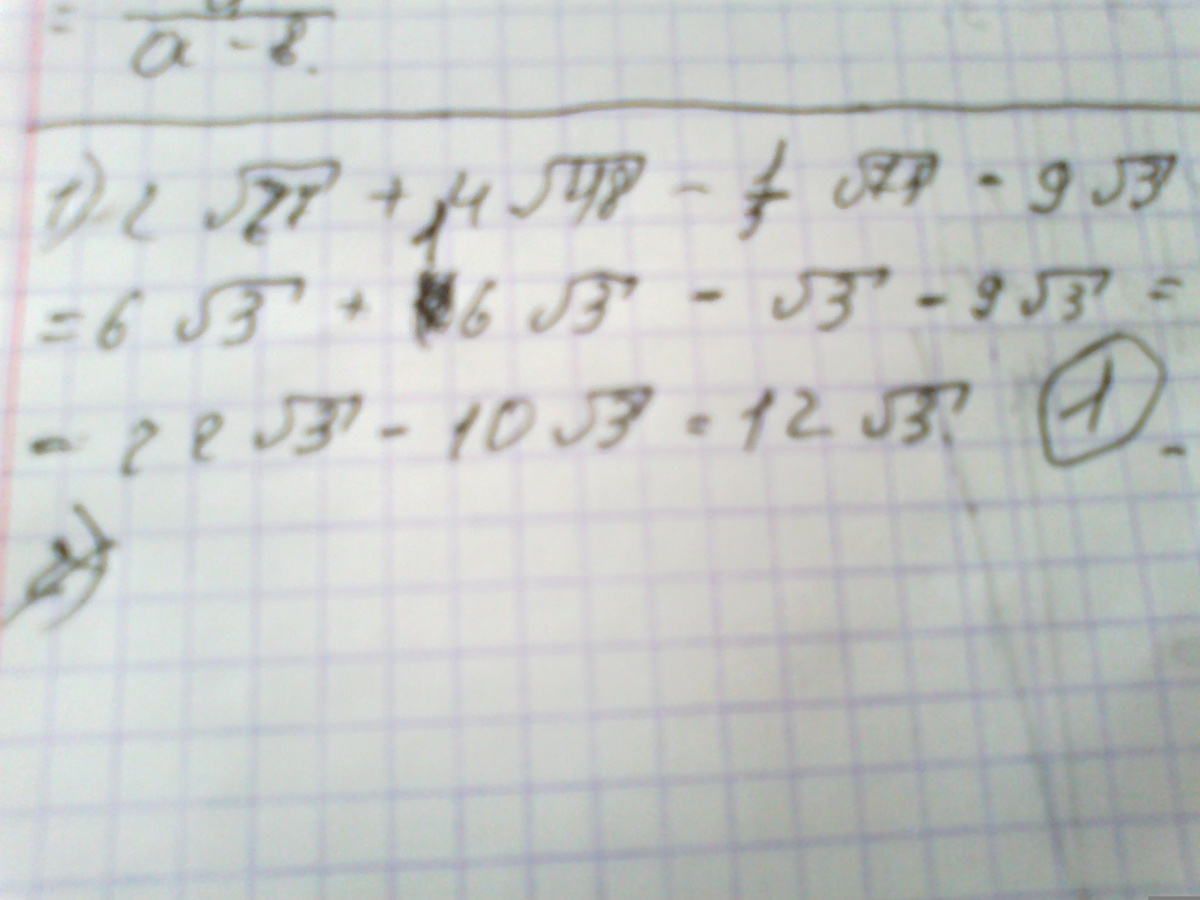 =
a - b.
1) 2 √27 + 4 √48 - 1/3 √27 - 9 √3
= 6 √3 + 16 √3 - √3 - 9 √3 =
= 22 √3 - 10 √3 = 12 √3. 1
2)